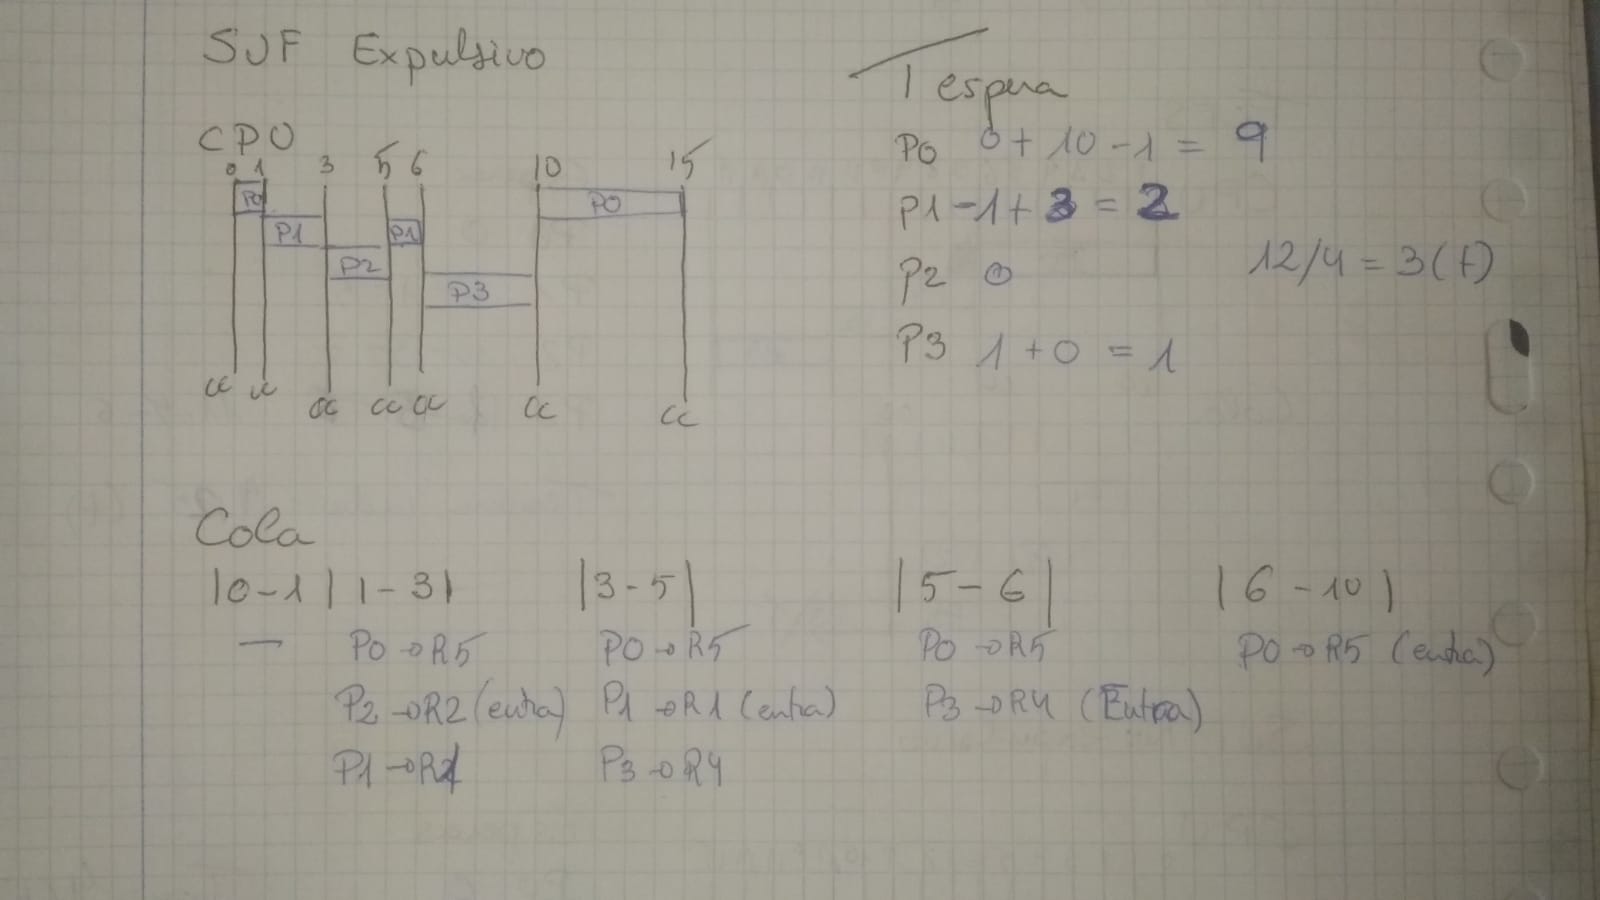 SJF Expulsivo
CPU
0 1 3 5 6 10 15
P0 P1 P2 P1 P3 P0
CC CC CC CC CC CC CC
T espera
P0 0 + 10 - 1 = 9
P1 -1 + 3 = 2
P2 0
P3 1 + 0 = 1
12/4 = 3 (t)
Cola
|0-1| 1-3| |3-5| |5-6| |6-10|
— P0→R5 P0→R5 P0→R5 P0→R5 (entra)
P2→R2 (entra) P1→R1 (entra) P3→R4 (Entra)
P1→R1 P3→R4